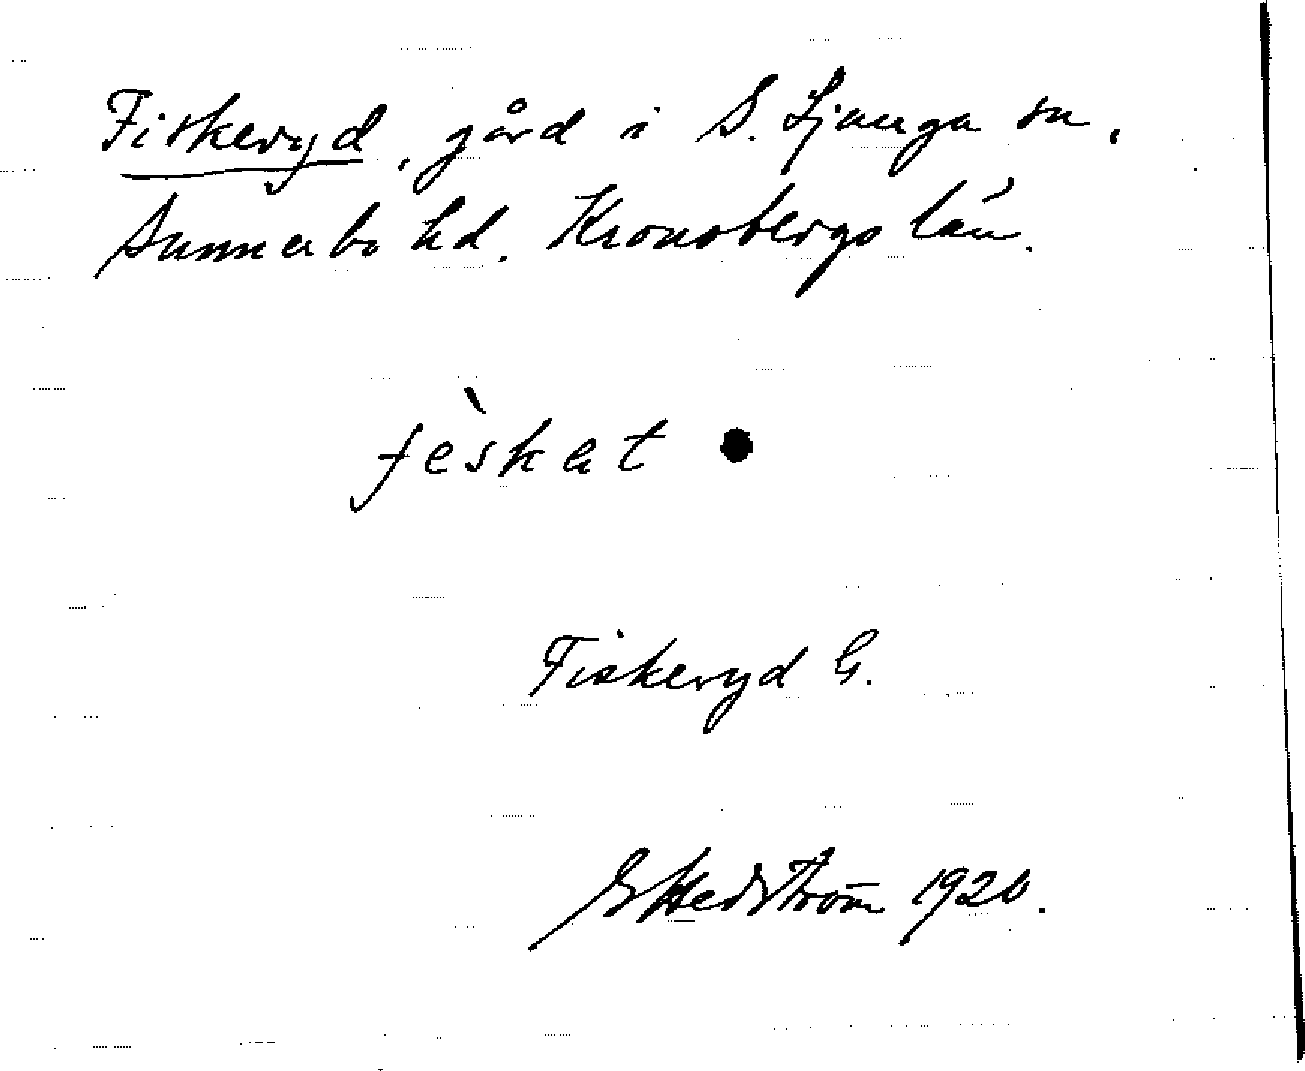 Fiskeryd, gård i S. Ljunga sn,
Sunnerbo hd. Kronobergs län.
fèskat
Fiskeryd G.
G Hedström 1920.